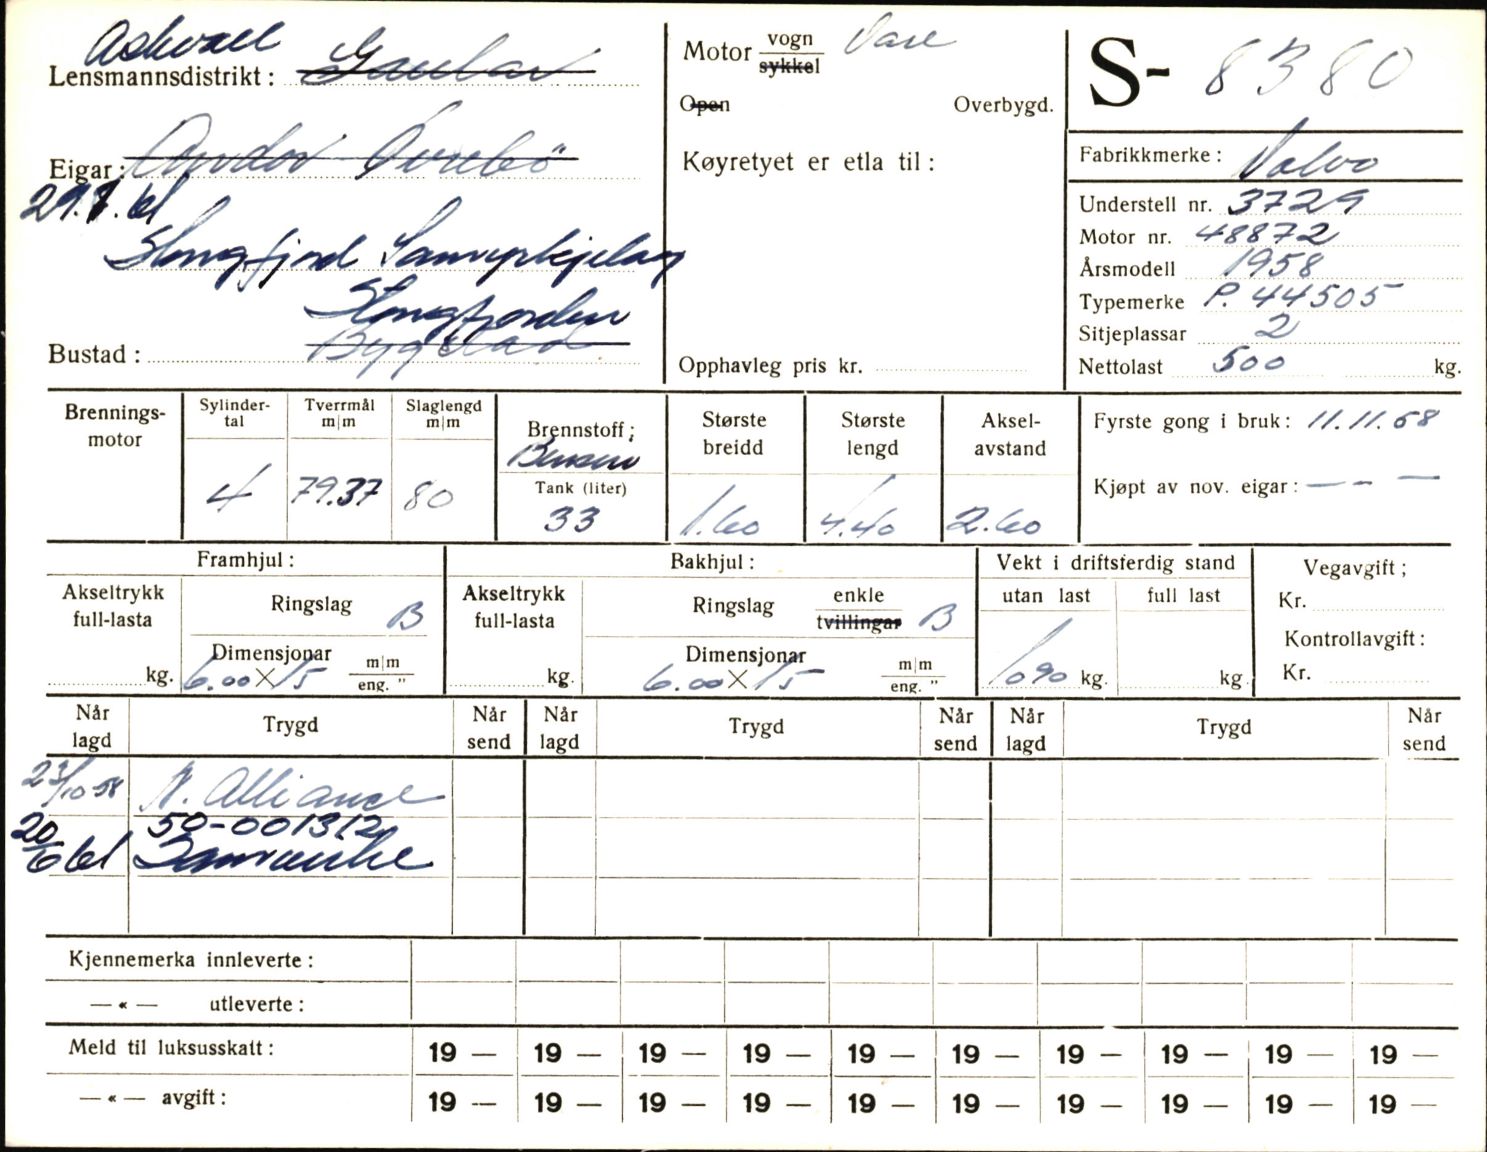 Askvoll
Lensmannsdistrikt: Gaular
Eigar: Andor
29.7.61
Stongfjord Samyrkjelag
Stongfjorden
Bustad: Bygstad
Motor vogn Vare
sykkel
Open Overbygd.
Køyretyet er etla til:
Opphavleg pris kr.
S- 8380
Fabrikkmerke: Volvo
Understell nr. 3729
Motor nr. 48872
Årsmodell 1958
Typemerke P. 44505
Sitjeplassar 2
Nettolast 500 kg.
Brennings-
motor
Sylinder-
tal
4
Tverrmål
m|m
79.37
Slaglengd
m|m
80
Brennstoff;
Bensin
Tank (liter)
33
Største
breidd
1.60
Største
lengd
4.40
Aksel-
avstand
2.60
Fyrste gong i bruk: 11.11.58
Kjøpt av nov. eigar: — - —
Framhjul:
Akseltrykk
full-lasta
kg.
Ringslag B
Dimensjonar
6.00 X 15 m|m
eng. "
Bakhjul:
Akseltrykk
full-lasta
kg.
Ringslag enkle B
tvillingar
Dimensjonar
6.00 X 15 m|m
eng. "
Vekt i driftsferdig stand
utan last full last
1090 kg. kg.
Vegavgift;
Kr.
Kontrollavgift:
Kr.
Når
lagd
Trygd
Når
send
Når
lagd
Trygd
Når
send
Når
lagd
Trygd
Når
send
23/10 58 N. Alliance
50-001312
20/6 61 Samvirke
Kjennemerka innleverte:
—«— utleverte:
Meld til luksusskatt: 19 — 19 — 19 — 19 — 19 — 19 — 19 — 19 — 19 — 19 —
—«— avgift: 19 — 19 — 19 — 19 — 19 — 19 — 19 — 19 — 19 — 19 —